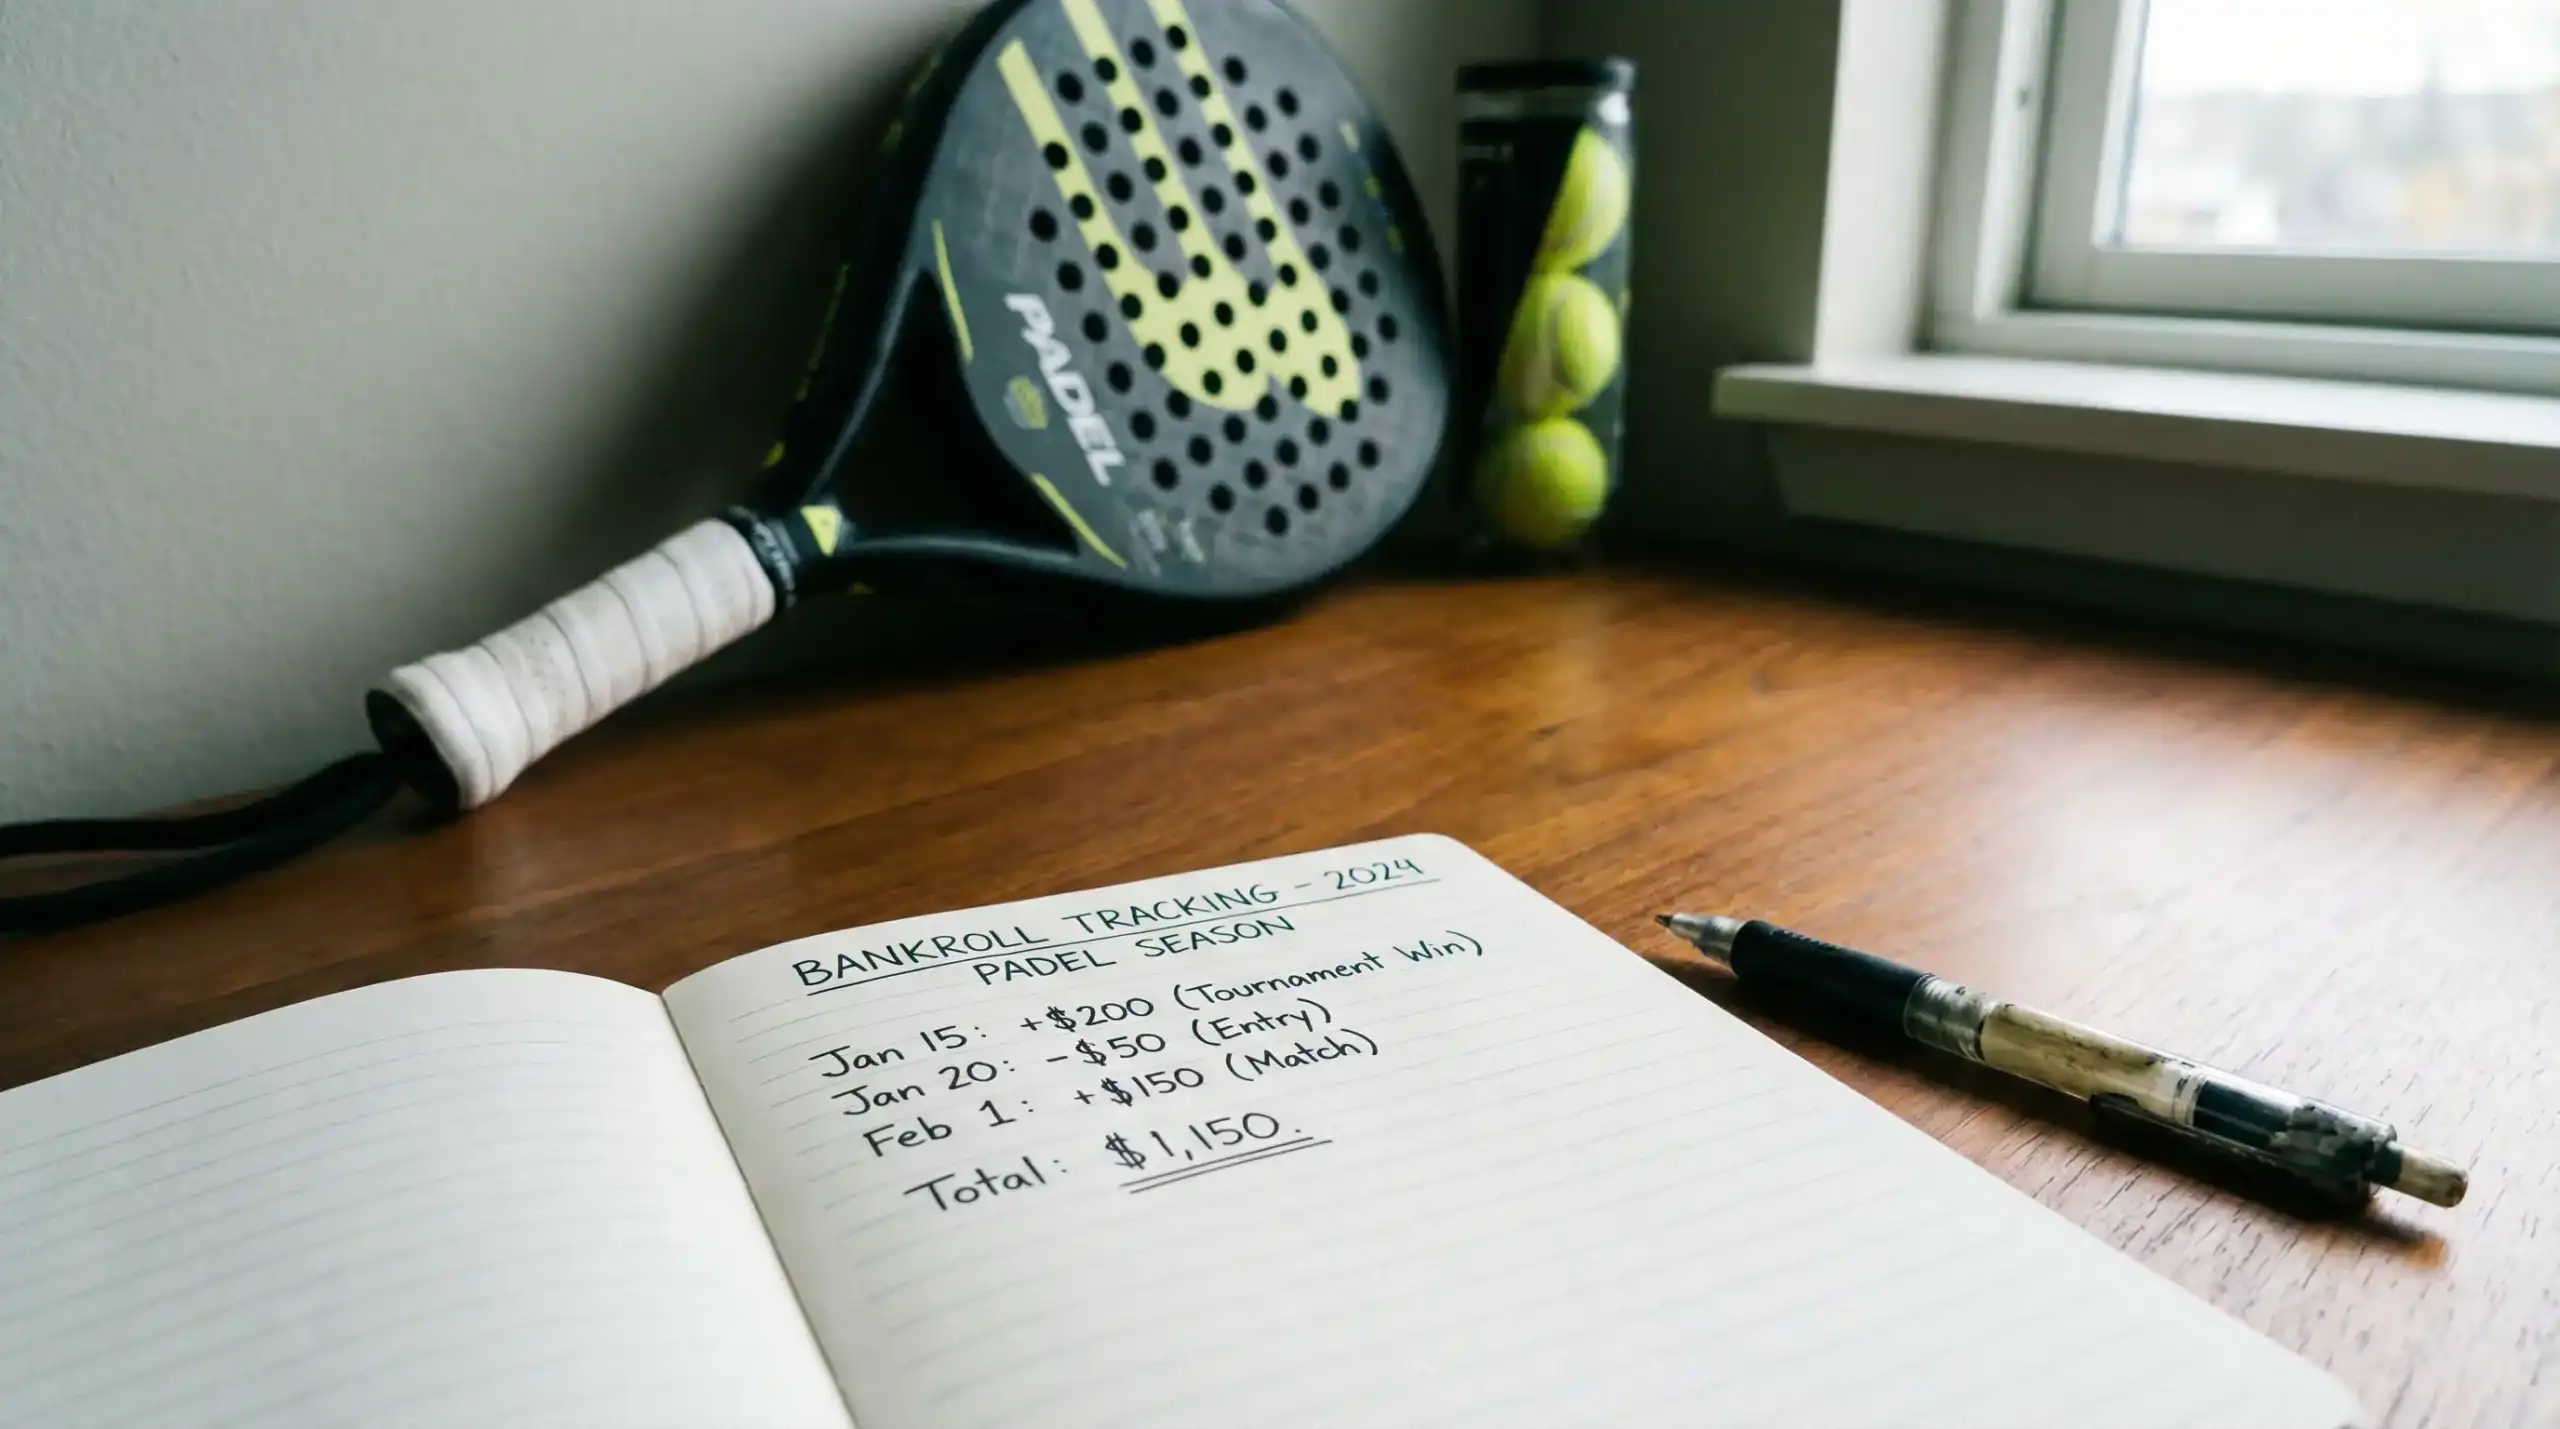 PADEL
BANKROLL TRACKING - 2024
PADEL SEASON
Jan 15: +$200 (Tournament Win)
Jan 20: -$50 (Entry)
Feb 1: +$150 (Match)
Total: $1,150.